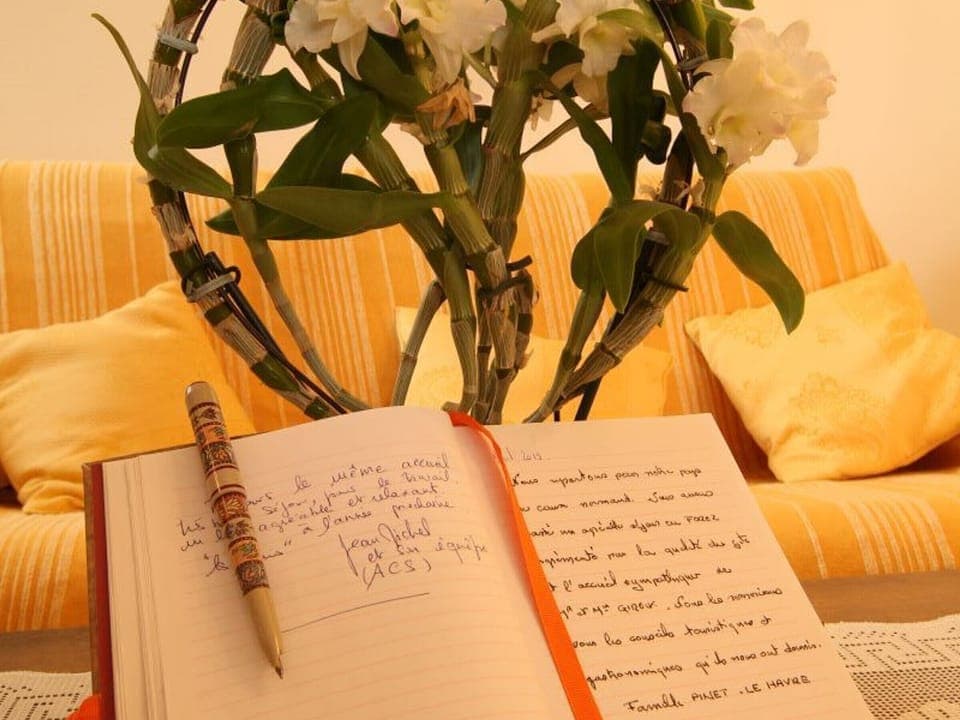 le même accueil
séjour, pour le travail
agréable et relaxant
" à l'année prochaine
Jean Michel
et son équipe
(ACS)
2019
Nous repartons pour notre pays
cours normand. Nous avons
un agréable séjour au FOREZ
agrémenté par la qualité du gîte
et l'accueil sympathique de
Mr et Mme GIROUX. Nous les remercions
pour les conseils touristiques et
gastronomiques qu'ils nous ont donnés.
Famille PINET - LE HAVRE